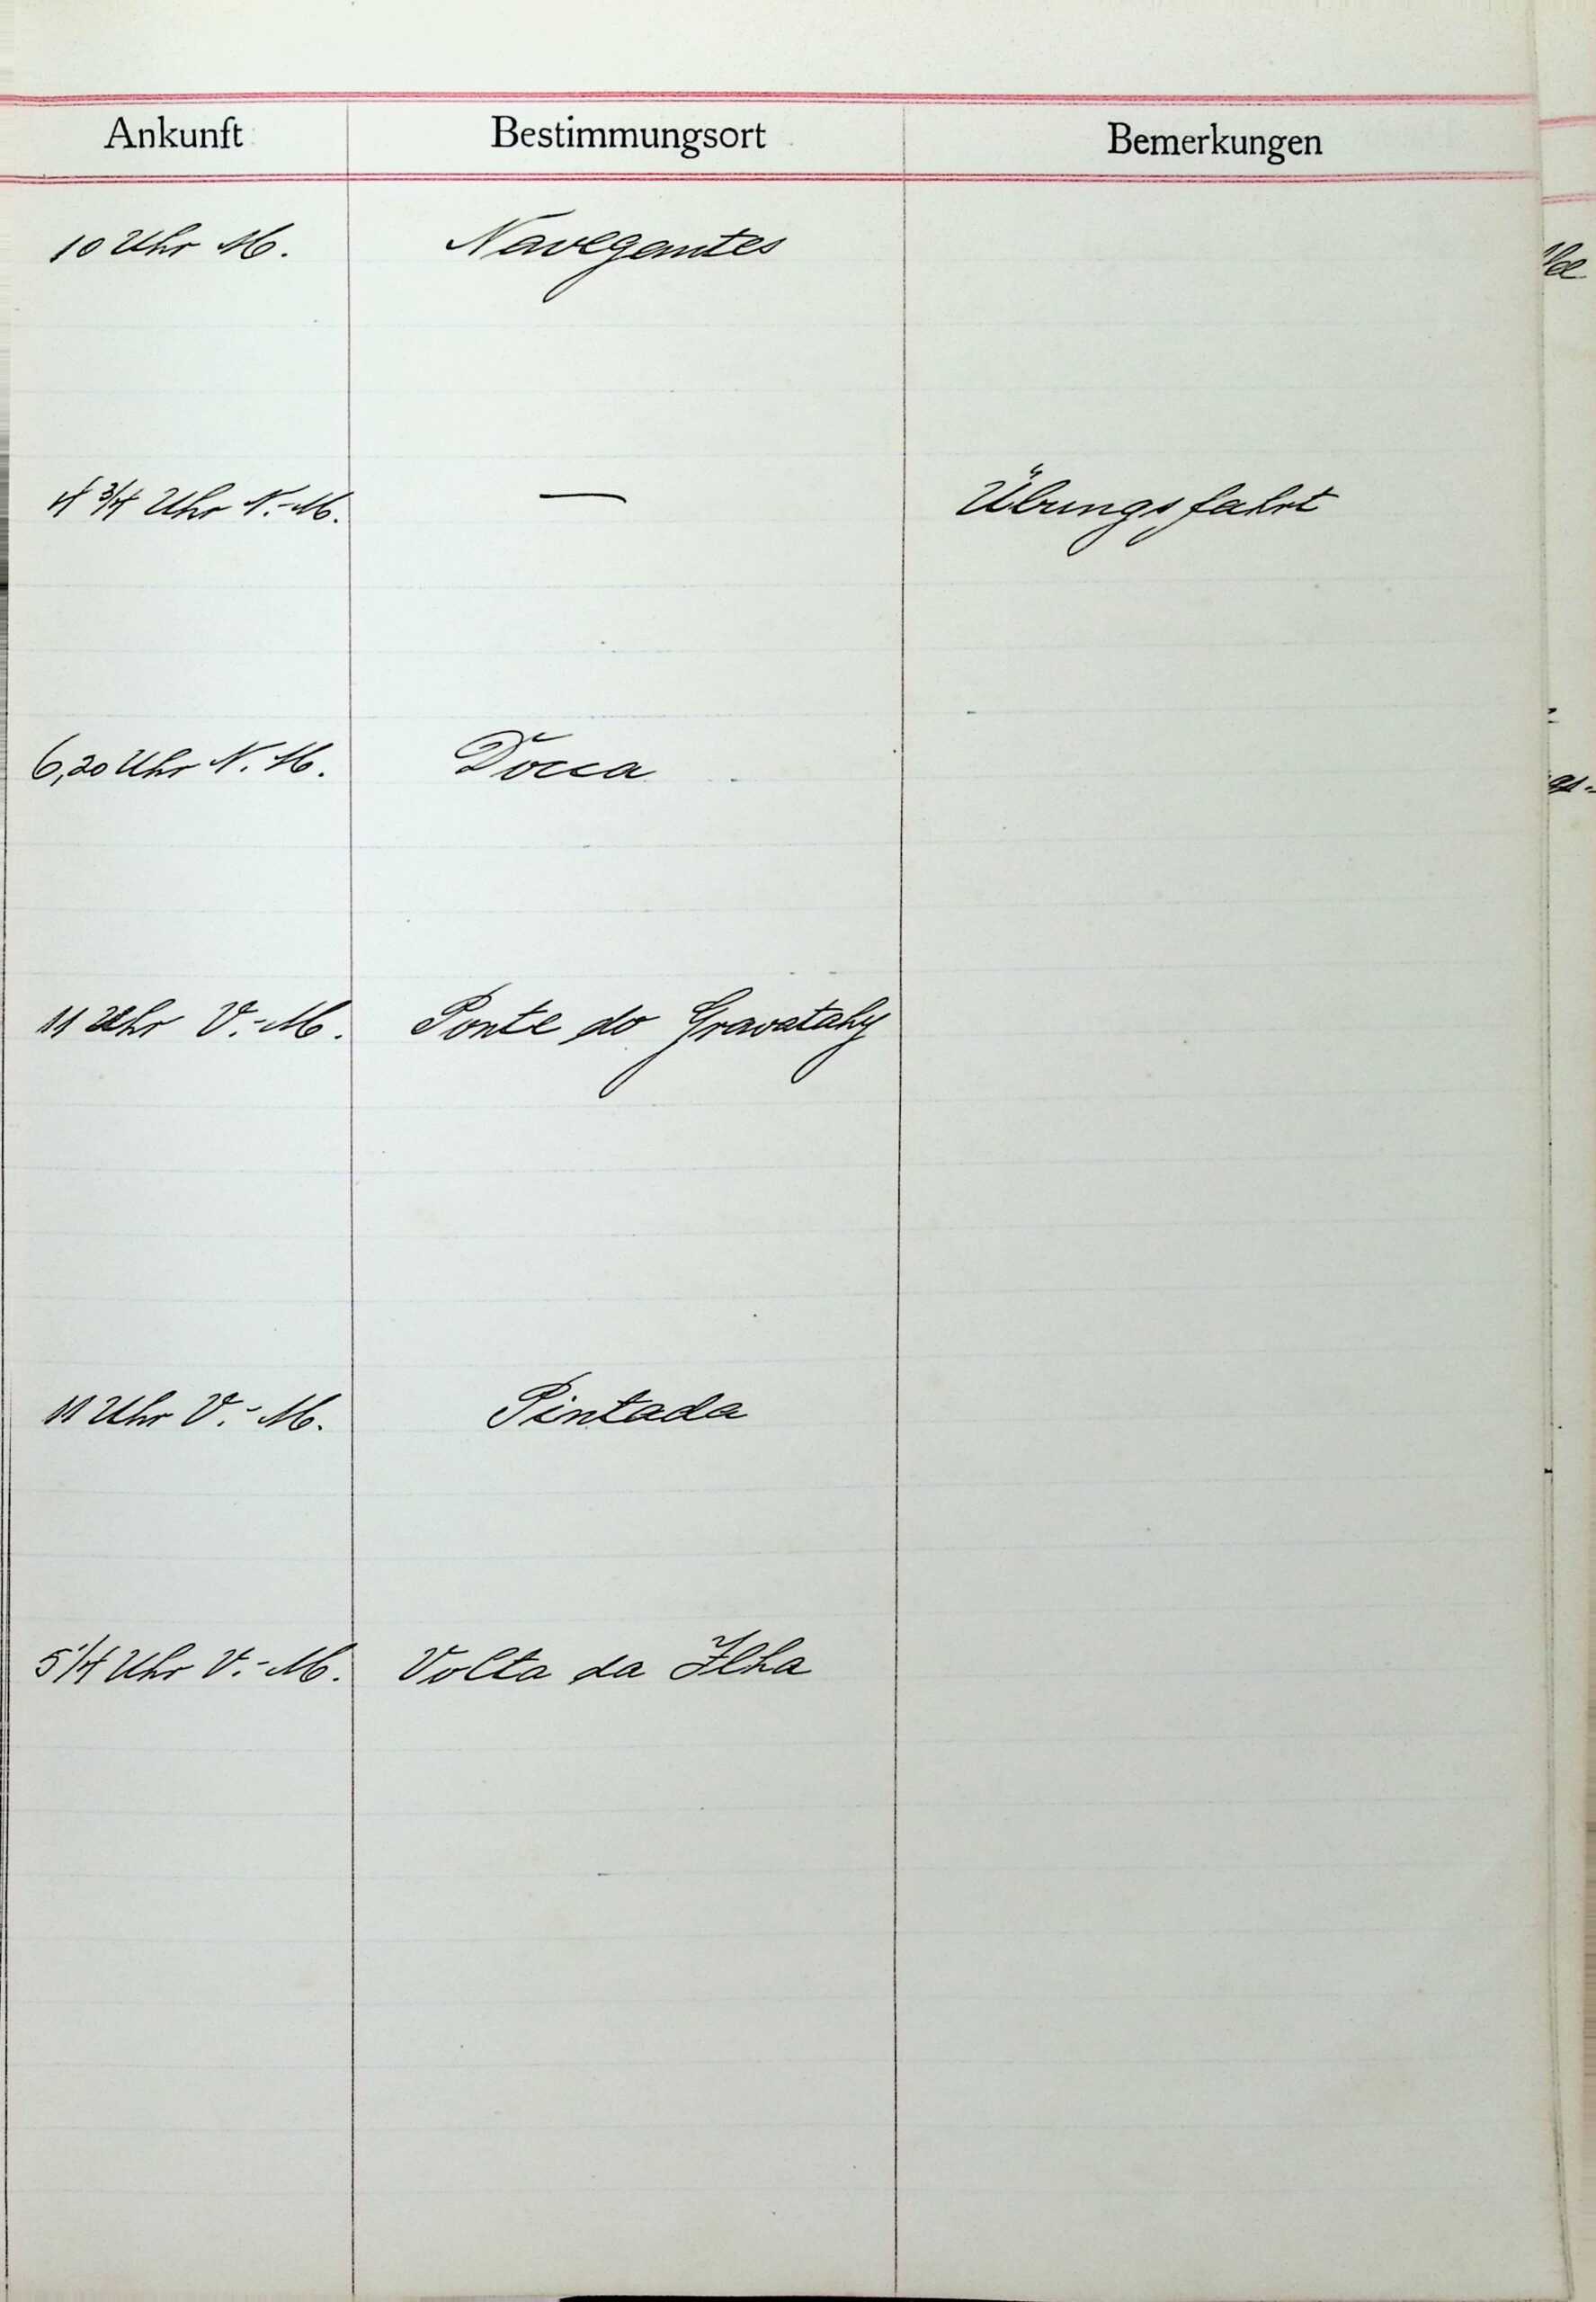 Ankunft Bestimmungsort Bemerkungen
10 Uhr M. Navegantes
4 3/4 Uhr N.-M. — Übungsfahrt
6,20 Uhr N. M. Docca
11 Uhr V.-M. Ponte do Gravatahy
11 Uhr V.-M. Pintada
5 1/4 Uhr V.-M. Volta da Ilha